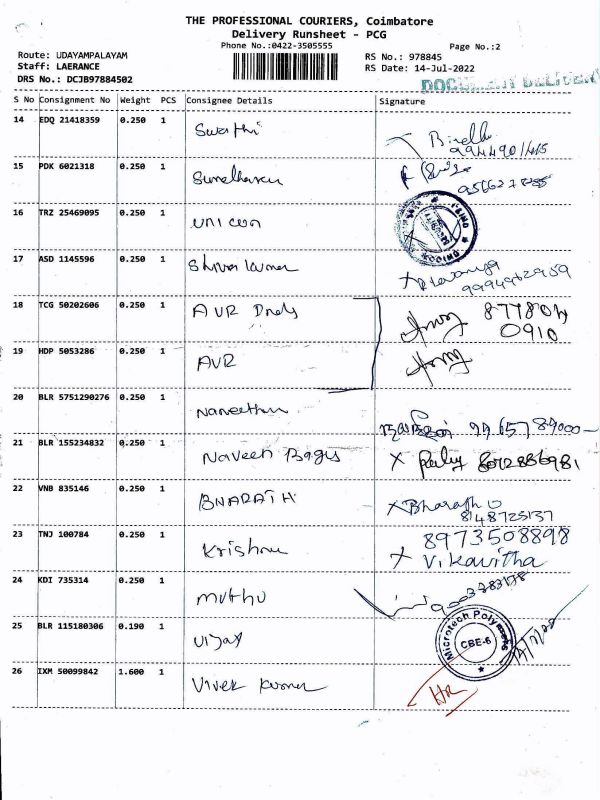 THE PROFESSIONAL COURIERS, Coimbatore
Delivery Runsheet - PCG
Phone No.:0422-3505555
Page No.:2
Route: UDAYAMPALAYAM
Staff: LAERANCE
DRS No.: DCJB97884502
RS No.: 978845
RS Date: 14-Jul-2022
DOCUMENT DELIVERY
S No Consignment No Weight PCS Consignee Details Signature
14 EDQ 21418359 0.250 1 Swathi
15 PDK 6021318 0.250 1
16 TRZ 25469095 0.250 1 unicon
17 ASD 1145596 0.250 1
18 TCG 50202606 0.250 1 AVR 877804
0910
19 HDP 5053286 0.250 1 AVR
20 BLR 5751290276 0.250 1
21 BLR 155234832 0.250 1 Naveen Bags X 8012886981
22 VNB 835146 0.250 1 BHARATH X Bharath
8148725137
23 TNJ 100784 0.250 1 Krishna 8973508898
X Vikavitha
24 KDI 735314 0.250 1 muthu
25 BLR 115180306 0.190 1 vijay
Microtech Polymers
CBE-6
26 IXM 50099842 1.600 1 Vivek Kumar HR